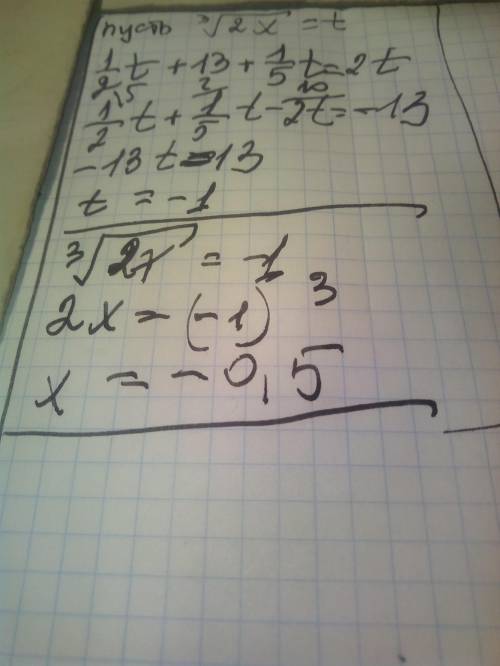 пусть ∛2x = t
1/2 t + 13 + 1/5 t = 2t
1/2 t + 1/5 t - 2t = -13
-13 t = 13
t = -1
∛2x = -1
2x = (-1)³
x = -0,5